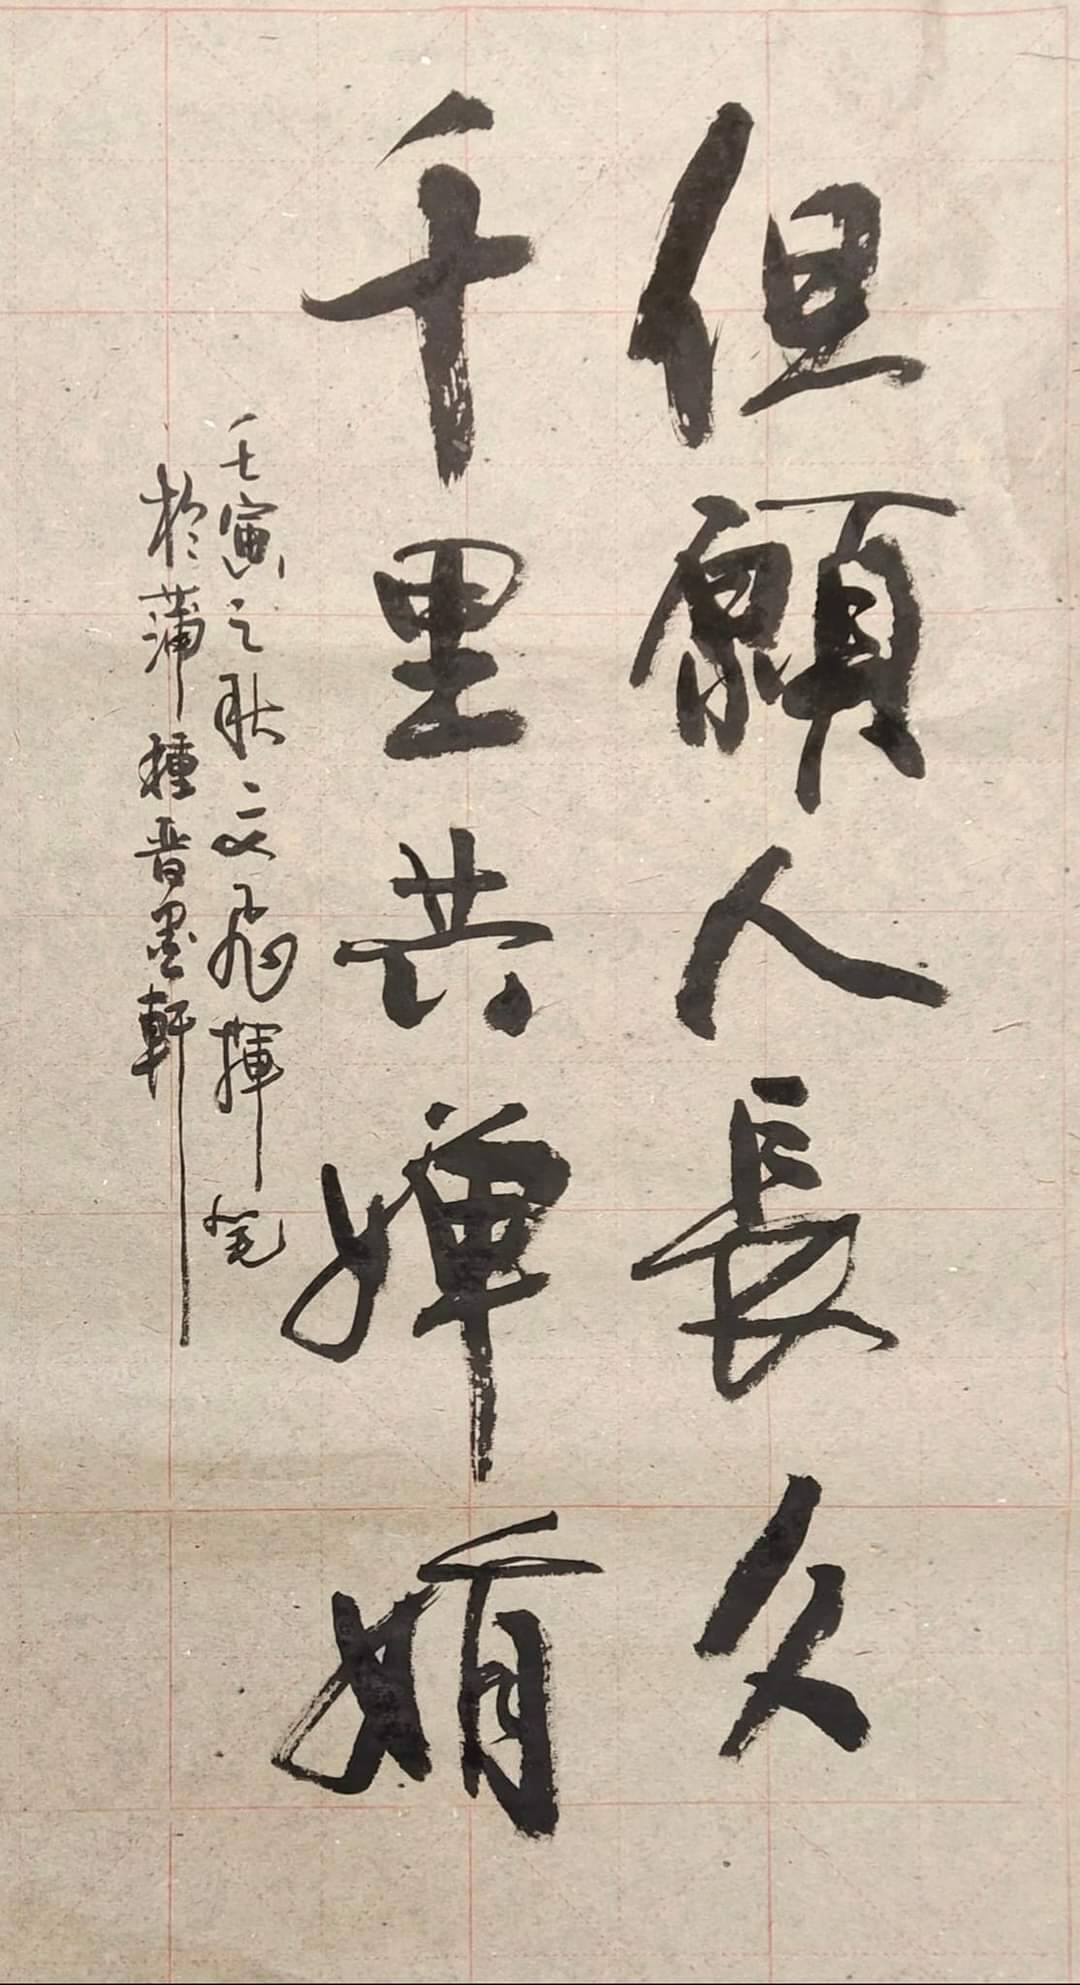 但願人長久
千里共嬋娟
壬寅之秋文飛揮筆
於蒲種晋墨軒